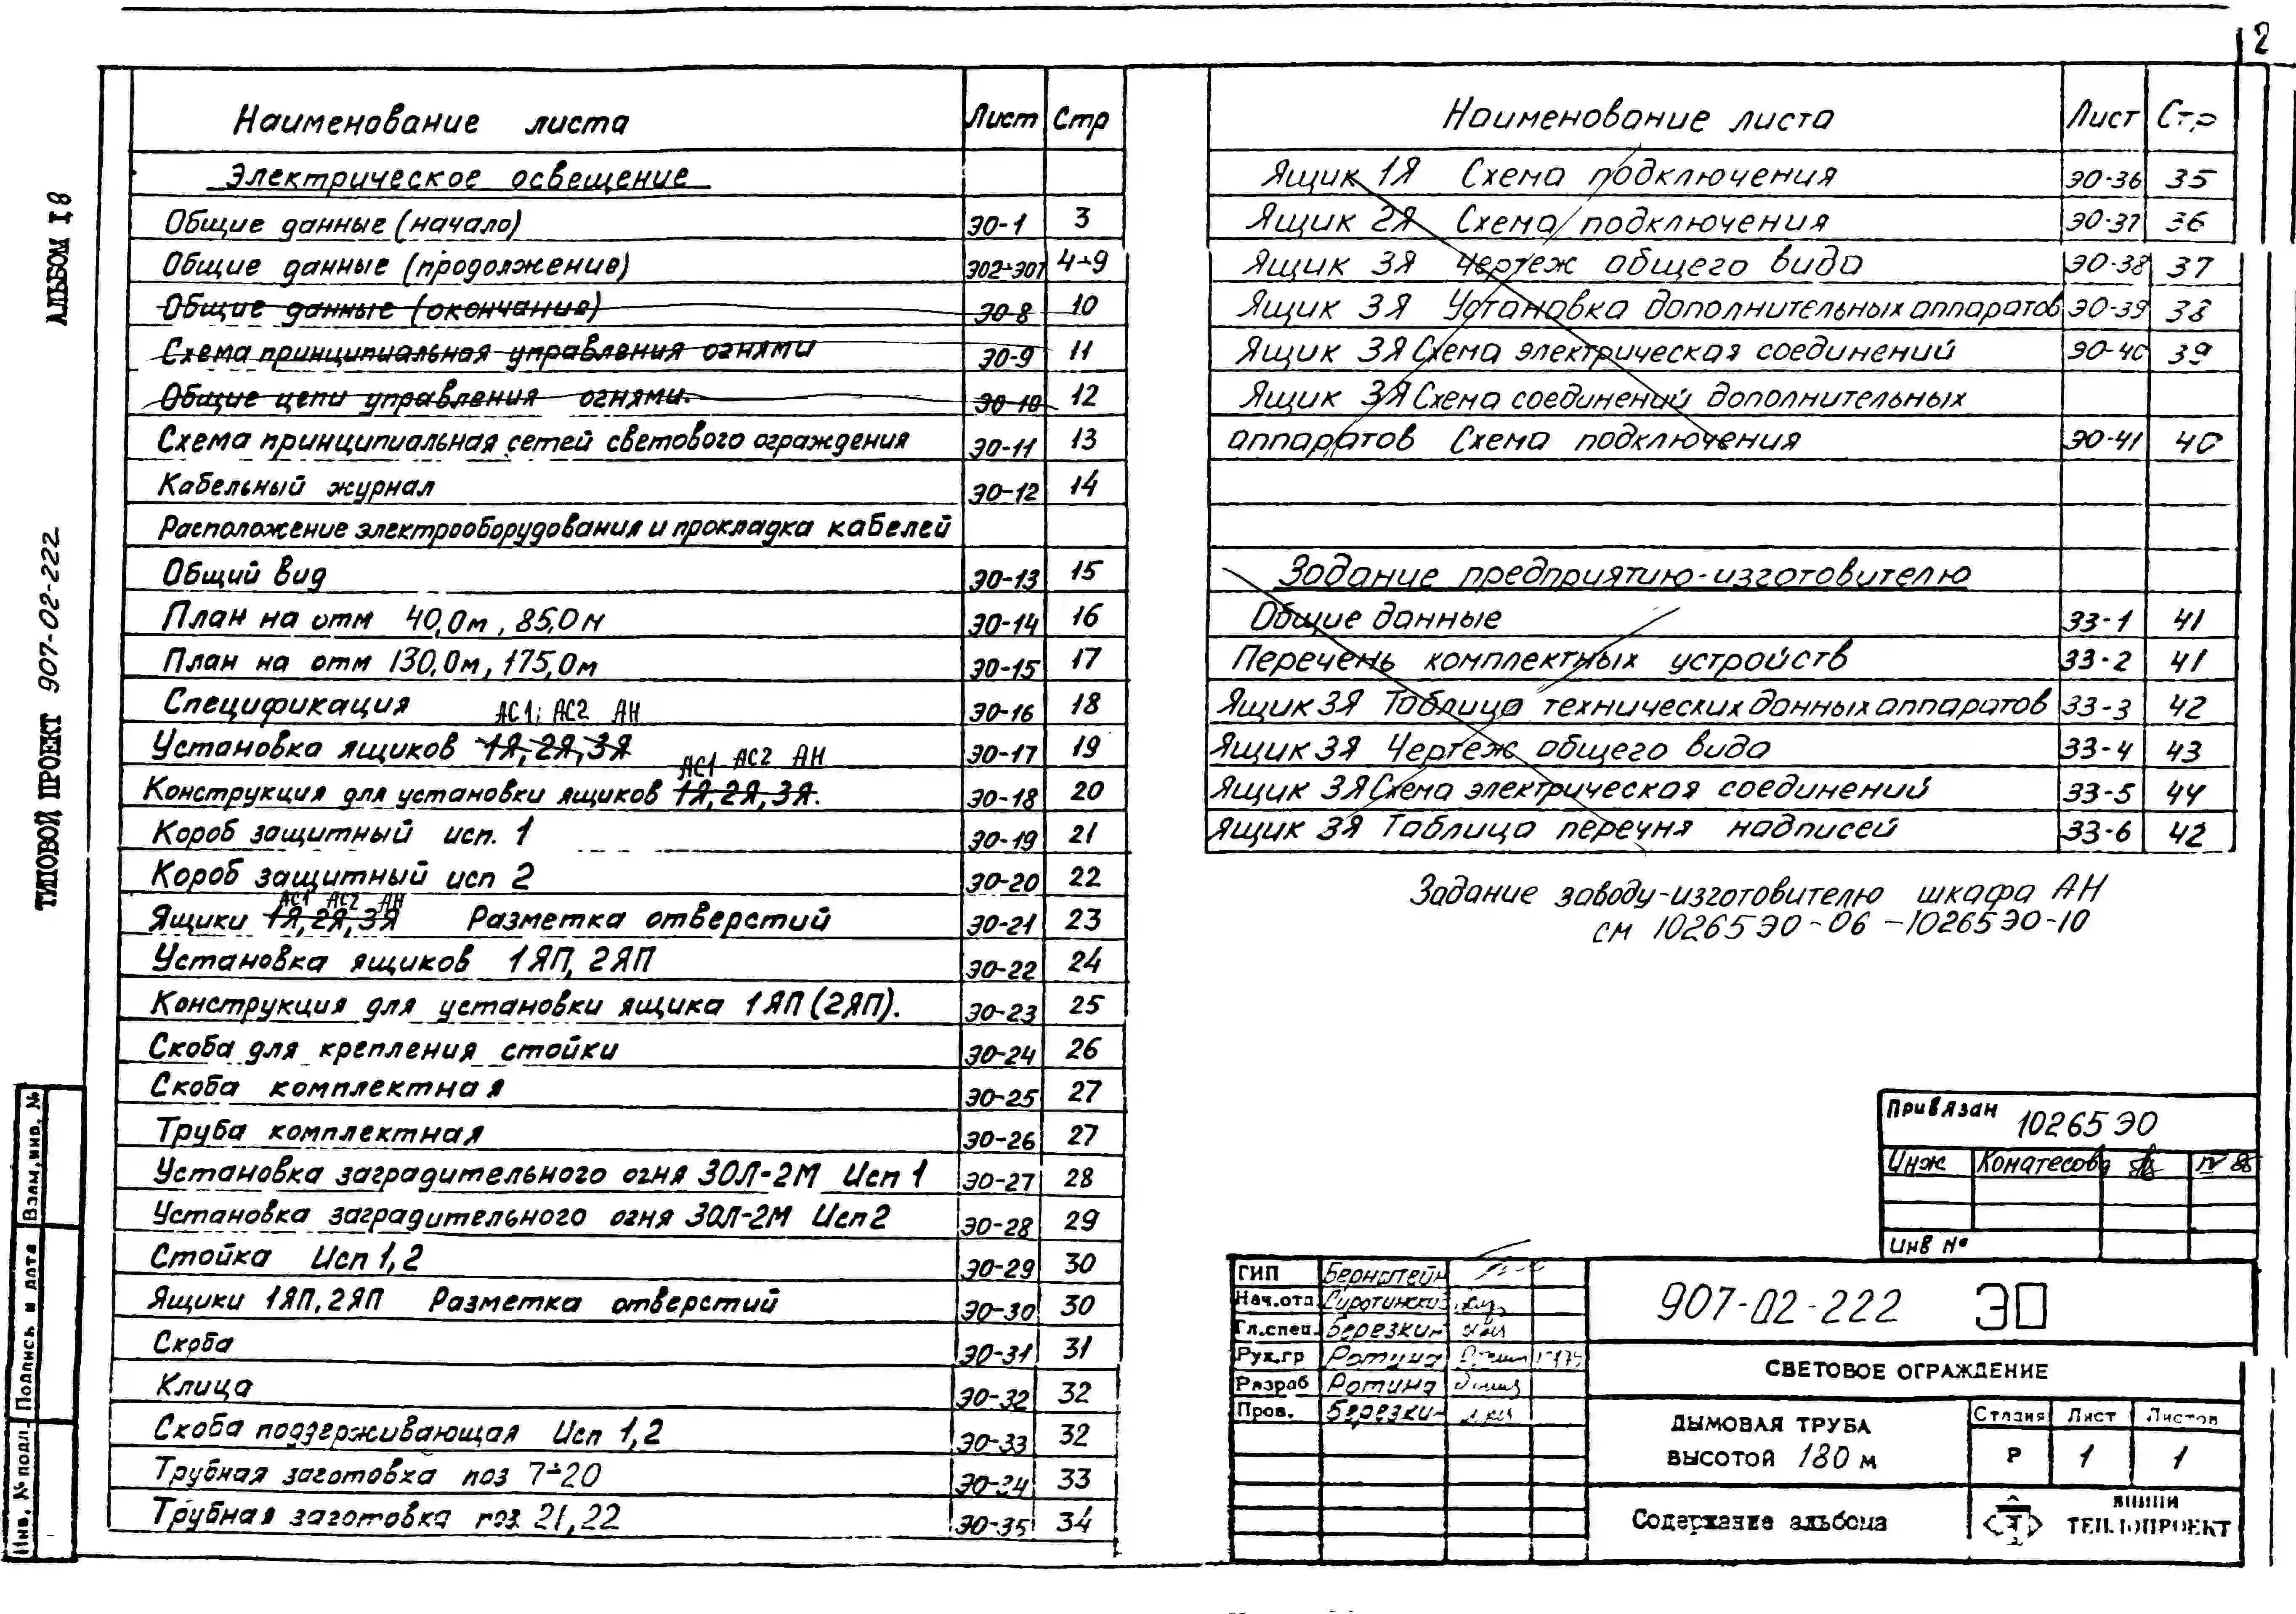 2
АЛЬБОМ I.8
ТИПОВОЙ ПРОЕКТ 907-02-222
Взам.инв.№
Подпись и дата
Инв.№ подл.
Наименование листа Лист Стр
Электрическое освещение
Общие данные (начало) ЭО-1 3
Общие данные (продолжение) ЭО2÷ЭО7 4÷9
Общие данные (окончание) ЭО-8 10
Схема принципиальная управления огнями ЭО-9 11
Общие цепи управления огнями. ЭО-10 12
Схема принципиальная сетей светового ограждения ЭО-11 13
Кабельный журнал ЭО-12 14
Расположение электрооборудования и прокладка кабелей
Общий вид ЭО-13 15
План на отм 40,0м, 85,0м ЭО-14 16
План на отм 130,0м, 175,0м ЭО-15 17
Спецификация ЭО-16 18
АС1; АС2 АН
Установка ящиков 1Я, 2Я, 3Я ЭО-17 19
АС1 АС2 АН
Конструкция для установки ящиков 1Я, 2Я, 3Я. ЭО-18 20
Короб защитный исп. 1 ЭО-19 21
Короб защитный исп 2 ЭО-20 22
АС1 АС2 АН
Ящики 1Я, 2Я, 3Я Разметка отверстий ЭО-21 23
Установка ящиков 1ЯП, 2ЯП ЭО-22 24
Конструкция для установки ящика 1ЯП (2ЯП). ЭО-23 25
Скоба для крепления стойки ЭО-24 26
Скоба комплектная ЭО-25 27
Труба комплектная ЭО-26 27
Установка заградительного огня ЗОЛ-2М Исп 1 ЭО-27 28
Установка заградительного огня ЗОЛ-2М Исп 2 ЭО-28 29
Стойка Исп 1,2 ЭО-29 30
Ящики 1ЯП, 2ЯП Разметка отверстий ЭО-30 30
Скоба ЭО-31 31
Клица ЭО-32 32
Скоба поддерживающая Исп 1,2 ЭО-33 32
Трубная заготовка поз 7÷20 ЭО-34 33
Трубная заготовка поз. 21,22 ЭО-35 34
Наименование листа Лист Стр
Ящик 1Я Схема подключения ЭО-36 35
Ящик 2Я Схема подключения ЭО-37 36
Ящик 3Я Чертеж общего вида ЭО-38 37
Ящик 3Я Установка дополнительных аппаратов ЭО-39 38
Ящик 3Я Схема электрическая соединений ЭО-40 39
Ящик 3Я Схема соединений дополнительных
аппаратов Схема подключения ЭО-41 40
Задание предприятию-изготовителю
Общие данные ЗЗ-1 41
Перечень комплектных устройств ЗЗ-2 41
Ящик 3Я Таблица технических данных аппаратов ЗЗ-3 42
Ящик 3Я Чертеж общего вида ЗЗ-4 43
Ящик 3Я Схема электрическая соединений ЗЗ-5 44
Ящик 3Я Таблица перечня надписей ЗЗ-6 42
Задание заводу-изготовителю шкафа АН
см 10265ЭО-06 -10265ЭО-10
Привязан 10265 ЭО
Инж Конатесова IV 88
Инв №
ГИП Бернштейн
Нач.отд. Сиротинский
Гл.спец. Березкин
Рук.гр Ротина
Разраб Ротина
Пров. Березкин
907-02-222 ЭО
СВЕТОВОЕ ОГРАЖДЕНИЕ
ДЫМОВАЯ ТРУБА
ВЫСОТОЙ 180 м
Стадия Лист Листов
Р 1 1
Содержание альбома
ВНИПИ
ТЕПЛОПРОЕКТ